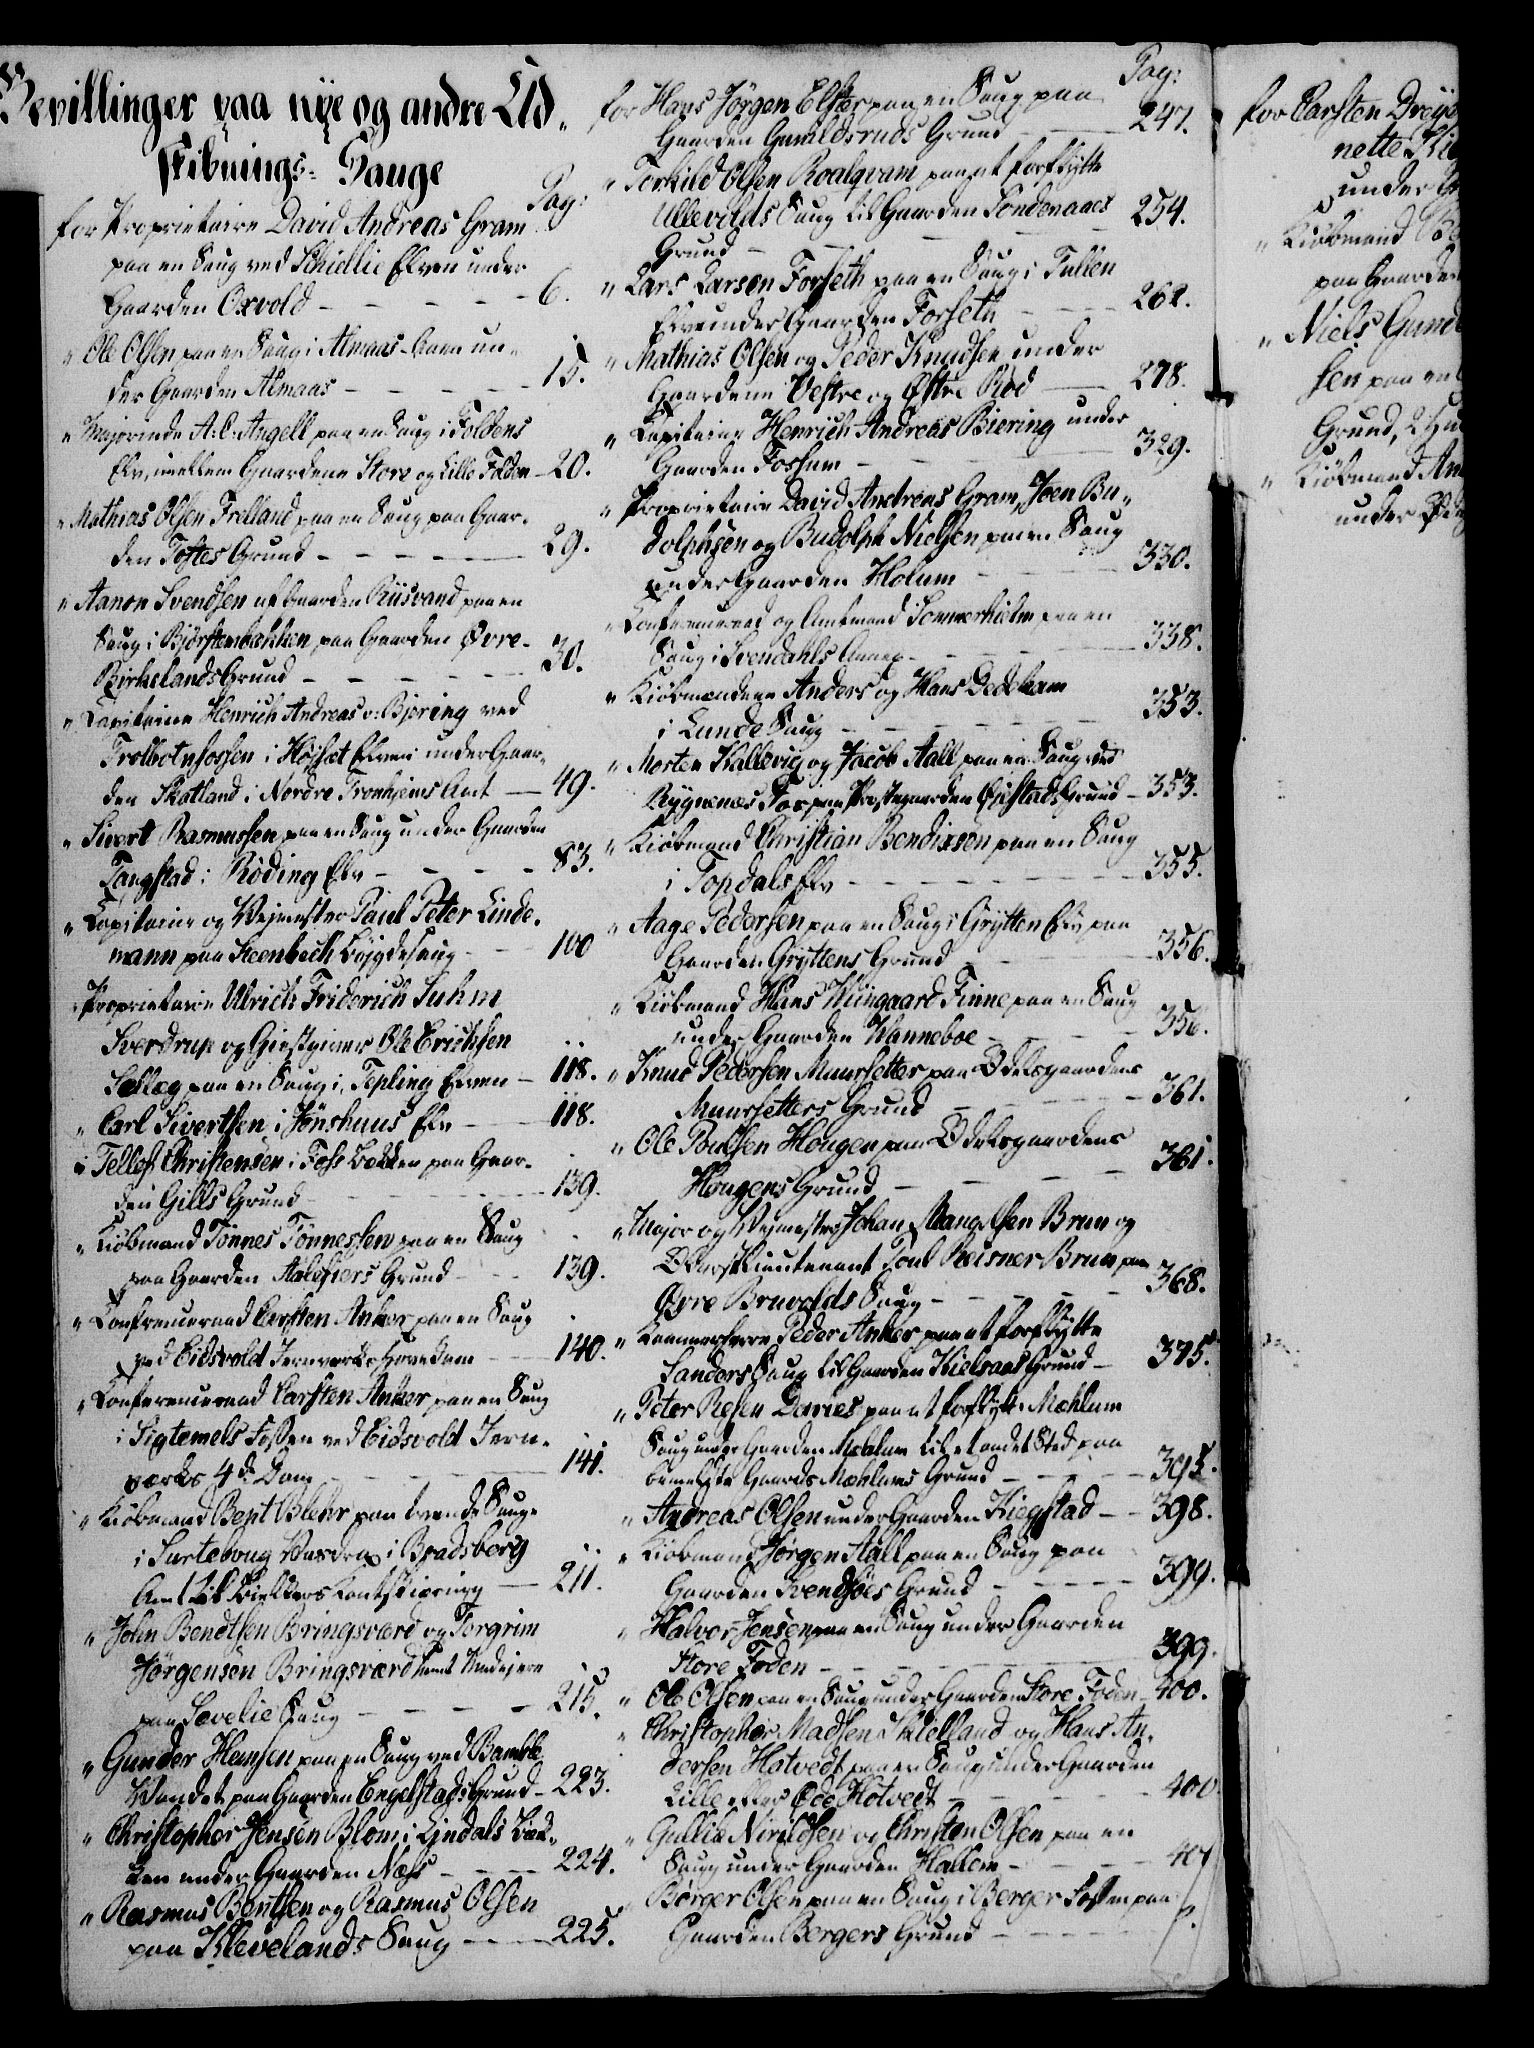 Bevillinger paa nÿe og andre Ud„
skibnings-Sauge
Pag:
for Proprietaire David Andreas Gram
paa en Saug ved Schiellie Elven under
Gaarden Oxvold - - - - 6.
„ Ole Olsen paa en Saug i Almaas-Aaen un„
der Gaarden Almaas - - - - 15.
„ Majorinde A: C: Angell paa en Saug i Foldens
Elv, imellem Gaardene Store og Lille Folden - 20.
„ Mathias Olsen Frelland paa en Saug paa Gaar„
den Toftes Grund - - - - 29.
„ Aanon Svendsen af Gaarden Riisvand paa en
Saug i Biörstenbækken, paa Gaarden Øvre-
Birkelands Grund - - - - 30.
„ Capitaine Henrich Andreas v: Bjering ved
Trolbotnfossen i Elven under Gaar„
den Skatland i Nordre Tronhjems Amt - 49.
„ Sivert Rasmussen paa en Saug under Gaarden
Tangstad i Röding Elv - - - - 83.
„ Capitaine og Vejmester Paul Peter Linde„
mann paa Steenbech Bøjgdesaug - - 100
„ Proprietaire Ulrich Friderich Suhm
Sverdrup og Giestgiver Ole Erichsen
Sellæg paa en Saug i Tepling Elven - 118.
„ Carl Sivertsen i Jönshuus Elv - - 118.
„ Tellef Christensen i Foss Bækken paa Gaar„
den Gills Grund - - - - 139.
„ Kiöbmand Tönnes Tönnessen paa en Saug
paa Gaarden Aalefiers Grund - - - 139.
„ Conferenceraad Carsten Anker paa en Saug
ved Eidsvold Jernværks Hovedam - - 140.
„ Conferenceraad Carsten Anker paa en Saug
i Sigtemels Fossen ved Eidsvold Jern„
værks 4de Dam - - - - 141.
„ Kiöbmand Bent Blehr paa tvende Sauge
i Surtevoug Vasdrag i Bradsberg
Amt til - 211.
„ John Bendtsen Bringsværd og Torgrim
Jörgensen Bringsværd samt Medejere
paa Sævelie Saug - - - - 215.
„ Gunder Hansen paa en Saug ved Bamble
Vandet paa Gaarden Engelstads Grund - 223.
„ Christopher Jensen Blom, i Lindals Bæk„
ken under Gaarden Næss - - - - 224.
„ Rasmus Bentsen og Rasmus Olsen
paa Klevelands Saug - - - - 225.
Pag:
for Hans Jörgen Elster paa en Saug paa
Gaarden Gunildsruds Grund - - 247.
„ Torkild Olsen Roalqvam paa at forflytte
Ullevolds Saug til Gaarden Tondenaaes
Grund - - - - 254.
„ Lars Larsen Forseth paa en Saug i Tullen
Elv under Gaarden Forseth - - - 262.
„ Mathias Olsen og Peder Knudsen under
Gaardene Vestre og Østre Röd - - 278.
„ Capitaine Henrich Andreas Biering under
Gaarden Fossum - - - - 329.
„ Proprietaire David Andreas Gram, Joen Bu„
dolphsen og Budolph Nielsen paa en Saug
under Gaarden Holum - - - - 330.
„ Conferenceraad og Amtmand Sommerhielm paa en
Saug i Svendahls Annex - - - - 338.
„ Kiöbmændene Anders og Hans Dedekam
i Lunde Saug - - - - 353.
„ Morten Kallevig og Jacob Aall paa en Saug ved
Rygnenæs Fos paa Præstegaarden Øiestads Grund - 353.
„ Kiöbmand Christian Bendixsen paa en Saug
i Topdals Elv - - - - 355.
„ Aage Pedersen paa en Saug i Grytten Elv paa
Gaarden Gryttens Grund - - - - 356.
„ Kiöbmand Hans Wiingaard Finne paa en Saug
under Gaarden Wanneboe - - - - 356.
„ Knud Pedersen Muursetter paa Odelsgaardens
Muursetters Grund - - - - 361.
„ Ole Hougen paa Odelsgaardens
Hougens Grund - - - - 361.
„ Major og Vejmester Johan Mangelsen Brun og
Oberstlieutenant Poul Reisner Brun paa
Øvre Bruvolds Saug - - - - 368.
„ Kammerherre Peder Anker paa at forflytte
Sanders Saug til Gaarden Kielsaas Grund - 375.
„ Peter Resen Darres paa at forflytte Mæhlum
Saug under Gaarden Mæhlum til et andet Sted paa
bemeldte Gaards Mæhlums Grund - - - - 395.
„ Andreas Olsen under Gaarden Kiegstad - - 398.
„ Kiöbmand Jørgen Aall paa en Saug paa
Gaarden Svendsöes Grund - - - - 399.
„ Halvor Jensen paa en Saug under Gaarden
Store Foden - - - - 399.
„ Ole Olsen paa en Saug under Gaarden Store Foden - 400.
„ Christopher Madsen Skielland og Hans An„
dersen Hotvedt paa en Saug under Gaarden
Lille eller Öde Hotvedt - - - - 400.
„ Gullik Nirildsen og Christen Olsen paa en
Saug under Gaarden Hallem - - - - 401
„ Børger Olsen paa en Saug i Berger Fossen paa
Gaarden Bergers Grund - - - -
for Carsten Dreÿe
nette
under
„ Kiöbmand
paa Gaarden
„ Niels Gund
sen paa en
Grund,
„ Kiöbmand An
under